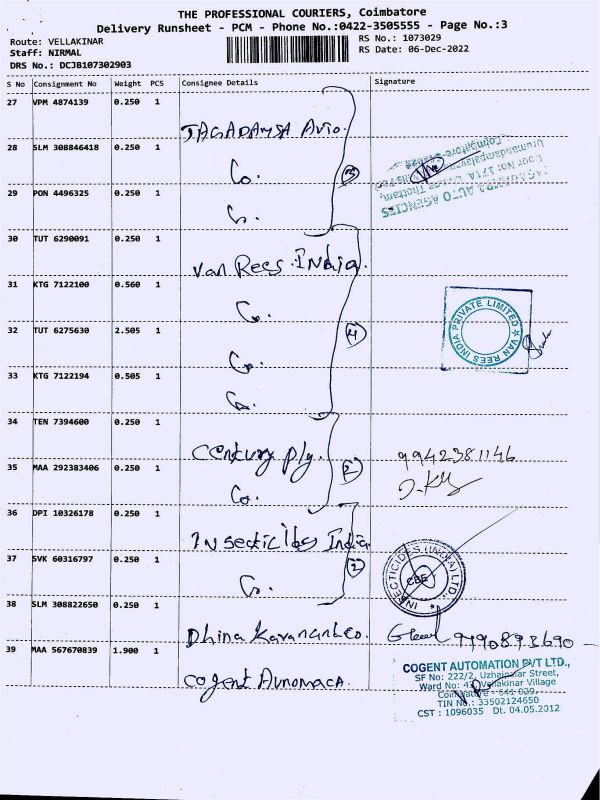 THE PROFESSIONAL COURIERS, Coimbatore
Delivery Runsheet - PCM - Phone No.:0422-3505555 - Page No.:3
Route: VELLAKINAR
Staff: NIRMAL
DRS No.: DCJB107302903
RS No.: 1073029
RS Date: 06-Dec-2022
S No Consignment No Weight PCS Consignee Details Signature
27 VPM 4874139 0.250 1
JAGADAMBA Auto.
28 SLM 308846418 0.250 1
Co.
29 PON 4496325 0.250 1
Co.
(3)
JAGADAMBA AUTO AGENCIES
Coimbatore
30 TUT 6290091 0.250 1
Van Rees India.
31 KTG 7122100 0.560 1
Co.
32 TUT 6275630 2.505 1
Co.
33 KTG 7122194 0.505 1
Co.
(4)
VAN REES INDIA PRIVATE LIMITED
34 TEN 7394600 0.250 1
Century ply.
9942381146
35 MAA 292383406 0.250 1
Co.
(2)
36 DPI 10326178 0.250 1
Insecticides India
37 SVK 60316797 0.250 1
Co.
(2)
INSECTICIDES (INDIA) LTD.
CBE
38 SLM 308822650 0.250 1
9190893690
39 MAA 567670839 1.900 1
COGENT AUTOMATION PVT LTD.,
SF No: 222/2, Uzhaipalar Street,
Ward No: 43, Vellakinar Village
Coimbatore - 641 029.
TIN No.: 33502124650
CST : 1096035 Dt. 04.05.2012